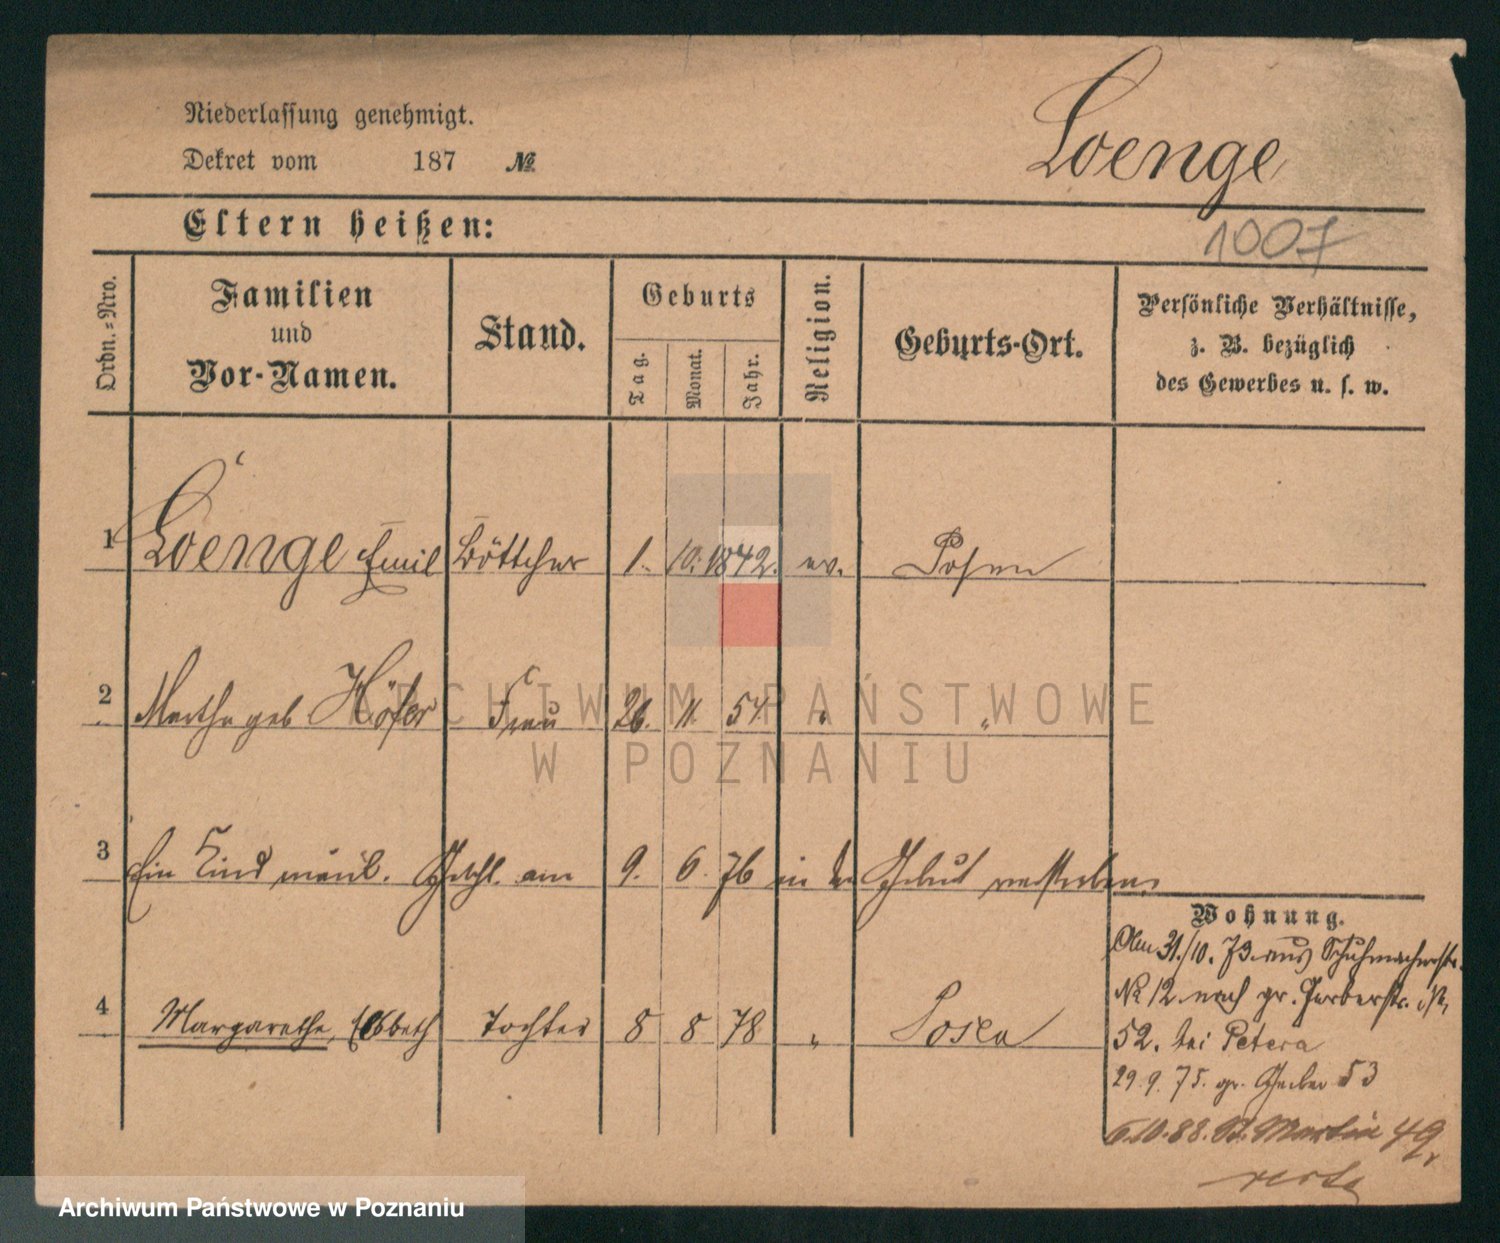 Niederlassung genehmigt.
Dekret vom 187 №
Loenge
1007
Eltern heißen:
Ordn.=Nro.
Familien
und
Vor-Namen.
Stand.
Geburts
Tag.
Monat.
Jahr.
Religion.
Geburts-Ort.
Persönliche Verhältnisse,
z. B. bezüglich
des Gewerbes u. s. w.
1 Loenge Emil Böttcher 1. 10. 1842. ev. Posen
2 Martha geb Höfer Frau 26. 11. 54. " "
3 Ein Kind männl. Geschl. am 9. 6. 76 in der Geburt verstorben.
4 Margarethe, Elsbeth Tochter 8 8 78 " Posen
Wohnung.
Am 31./10. 73. aus Schuhmacherstr.
№ 12. nach gr. Gerberstr. №
52. bei Petera
29. 9. 75. gr. Gerber 53
6.10.88. St. Martin 49
verte
ARCHIWUM PAŃSTWOWE
W POZNANIU
Archiwum Państwowe w Poznaniu